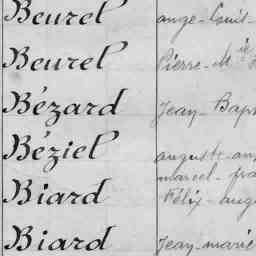 Beurel ange-Louis-
Beurel Pierre-Mie
Bézard Jean-Bap
Béziel auguste-an
marcel-fra
Biard Félix-augu
Biard Jean-marie